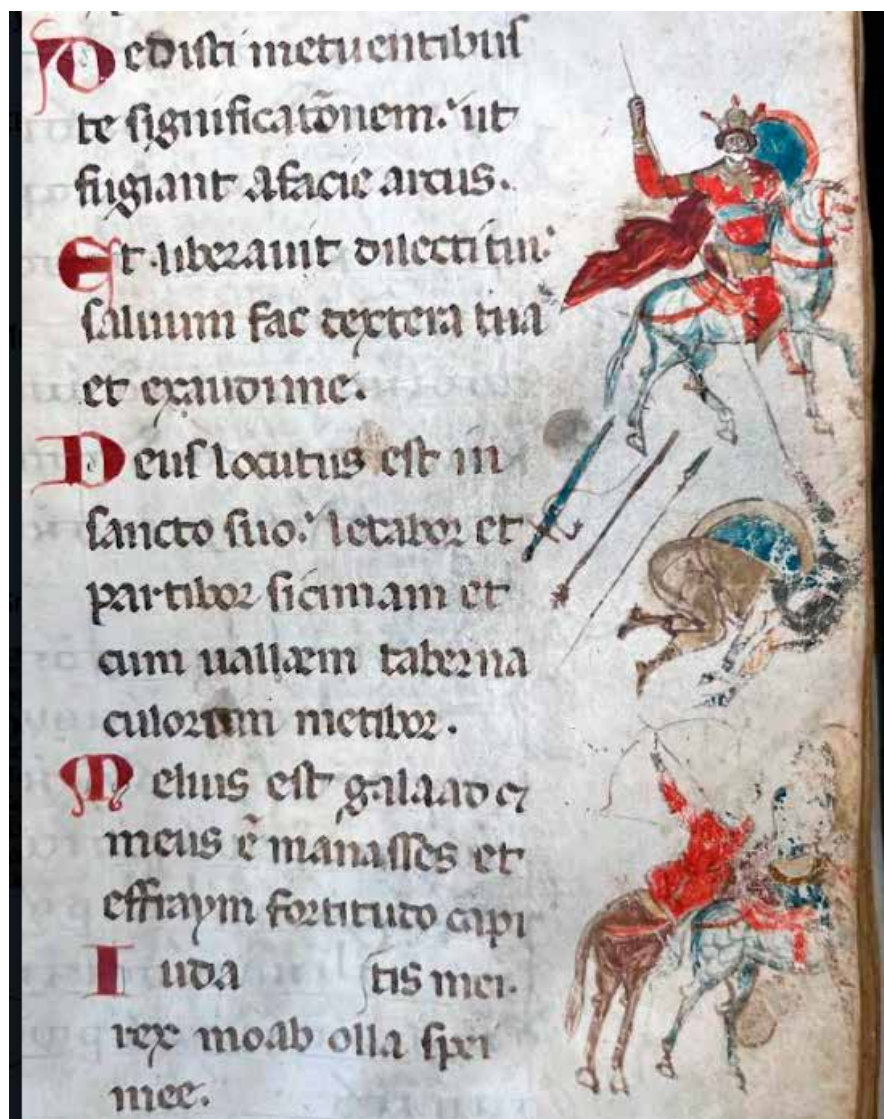 Dedisti metuentibus
te significatōnem. ut
fugiant a facie arcus.
Et liberavit dilecti tui.
saluum fac dextera tua
et exaudi me.
Deus locutus est in
sancto suo. letabor et
partibor sicimam et
cum uallem taberna
culorum metibor.
Melius est galaad et
meus ē manasses et
effraym fortitudo capi
Iuda tis mei.
rex moab olla spei
mee.